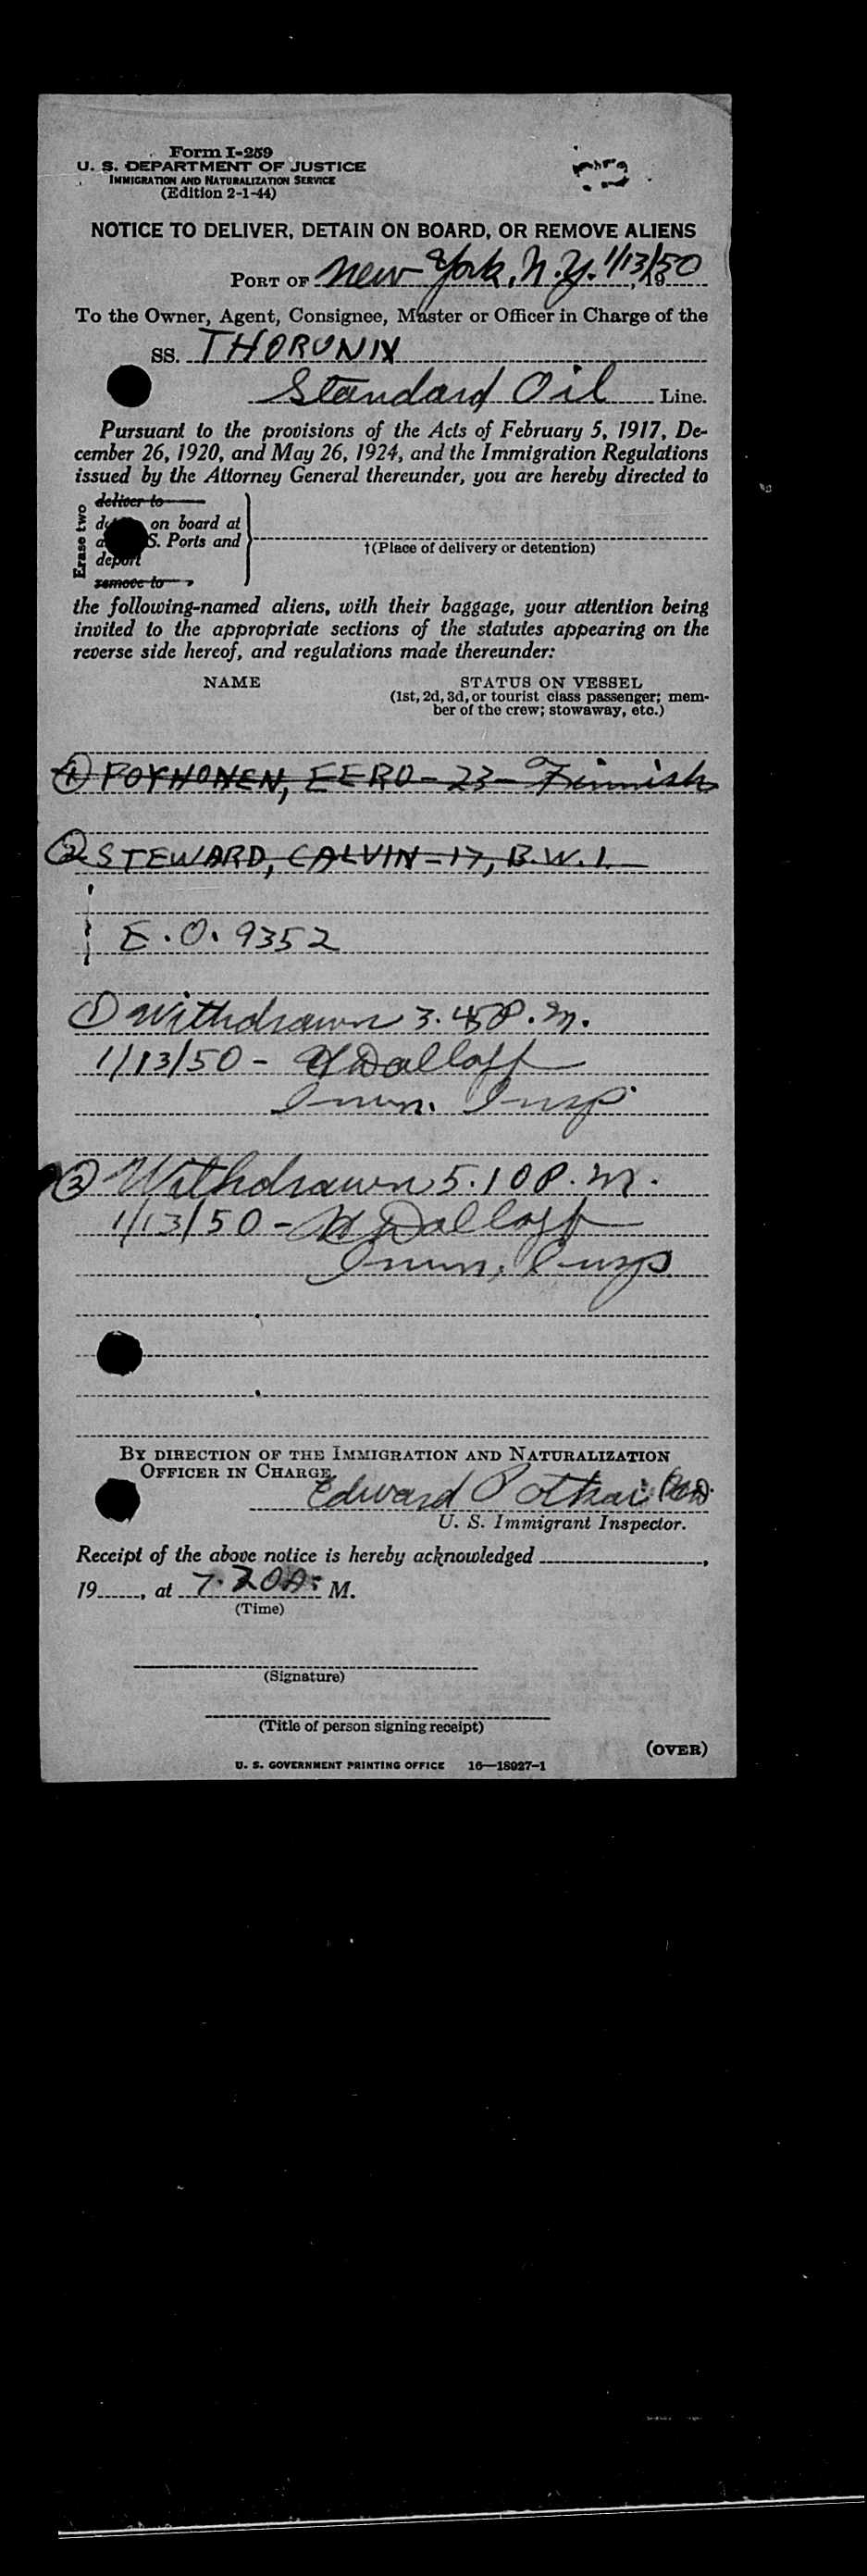 Form I-259
U. S. DEPARTMENT OF JUSTICE
IMMIGRATION AND NATURALIZATION SERVICE
(Edition 2-1-44)
NOTICE TO DELIVER, DETAIN ON BOARD, OR REMOVE ALIENS
PORT OF New York, N.Y. 1/13/50, 19
To the Owner, Agent, Consignee, Master or Officer in Charge of the
SS. THORUNIX
Standard Oil Line.
Pursuant to the provisions of the Acts of February 5, 1917, De-
cember 26, 1920, and May 26, 1924, and the Immigration Regulations
issued by the Attorney General thereunder, you are hereby directed to
Erase two
deliver to
on board at
S. Ports and
deport
remove to
†(Place of delivery or detention)
the following-named aliens, with their baggage, your attention being
invited to the appropriate sections of the statutes appearing on the
reverse side hereof, and regulations made thereunder:
NAME
STATUS ON VESSEL
(1st, 2d, 3d, or tourist class passenger; mem-
ber of the crew; stowaway, etc.)
① POYHONEN, EERO - 23 - Finnish
② STEWARD, CALVIN - 17, B.W.I.
E.O. 9352
① Withdrawn 3.45 P.M.
1/13/50 - Dalloff
Imm. Insp.
② Withdrawn 5.10 P.M.
1/13/50 - Dalloff
Imm. Insp.
BY DIRECTION OF THE IMMIGRATION AND NATURALIZATION
OFFICER IN CHARGE.
Edward
U. S. Immigrant Inspector.
Receipt of the above notice is hereby acknowledged ,
19 , at 7.20 A. M.
(Time)
(Signature)
(Title of person signing receipt)
(OVER)
U. S. GOVERNMENT PRINTING OFFICE 16—18927-1